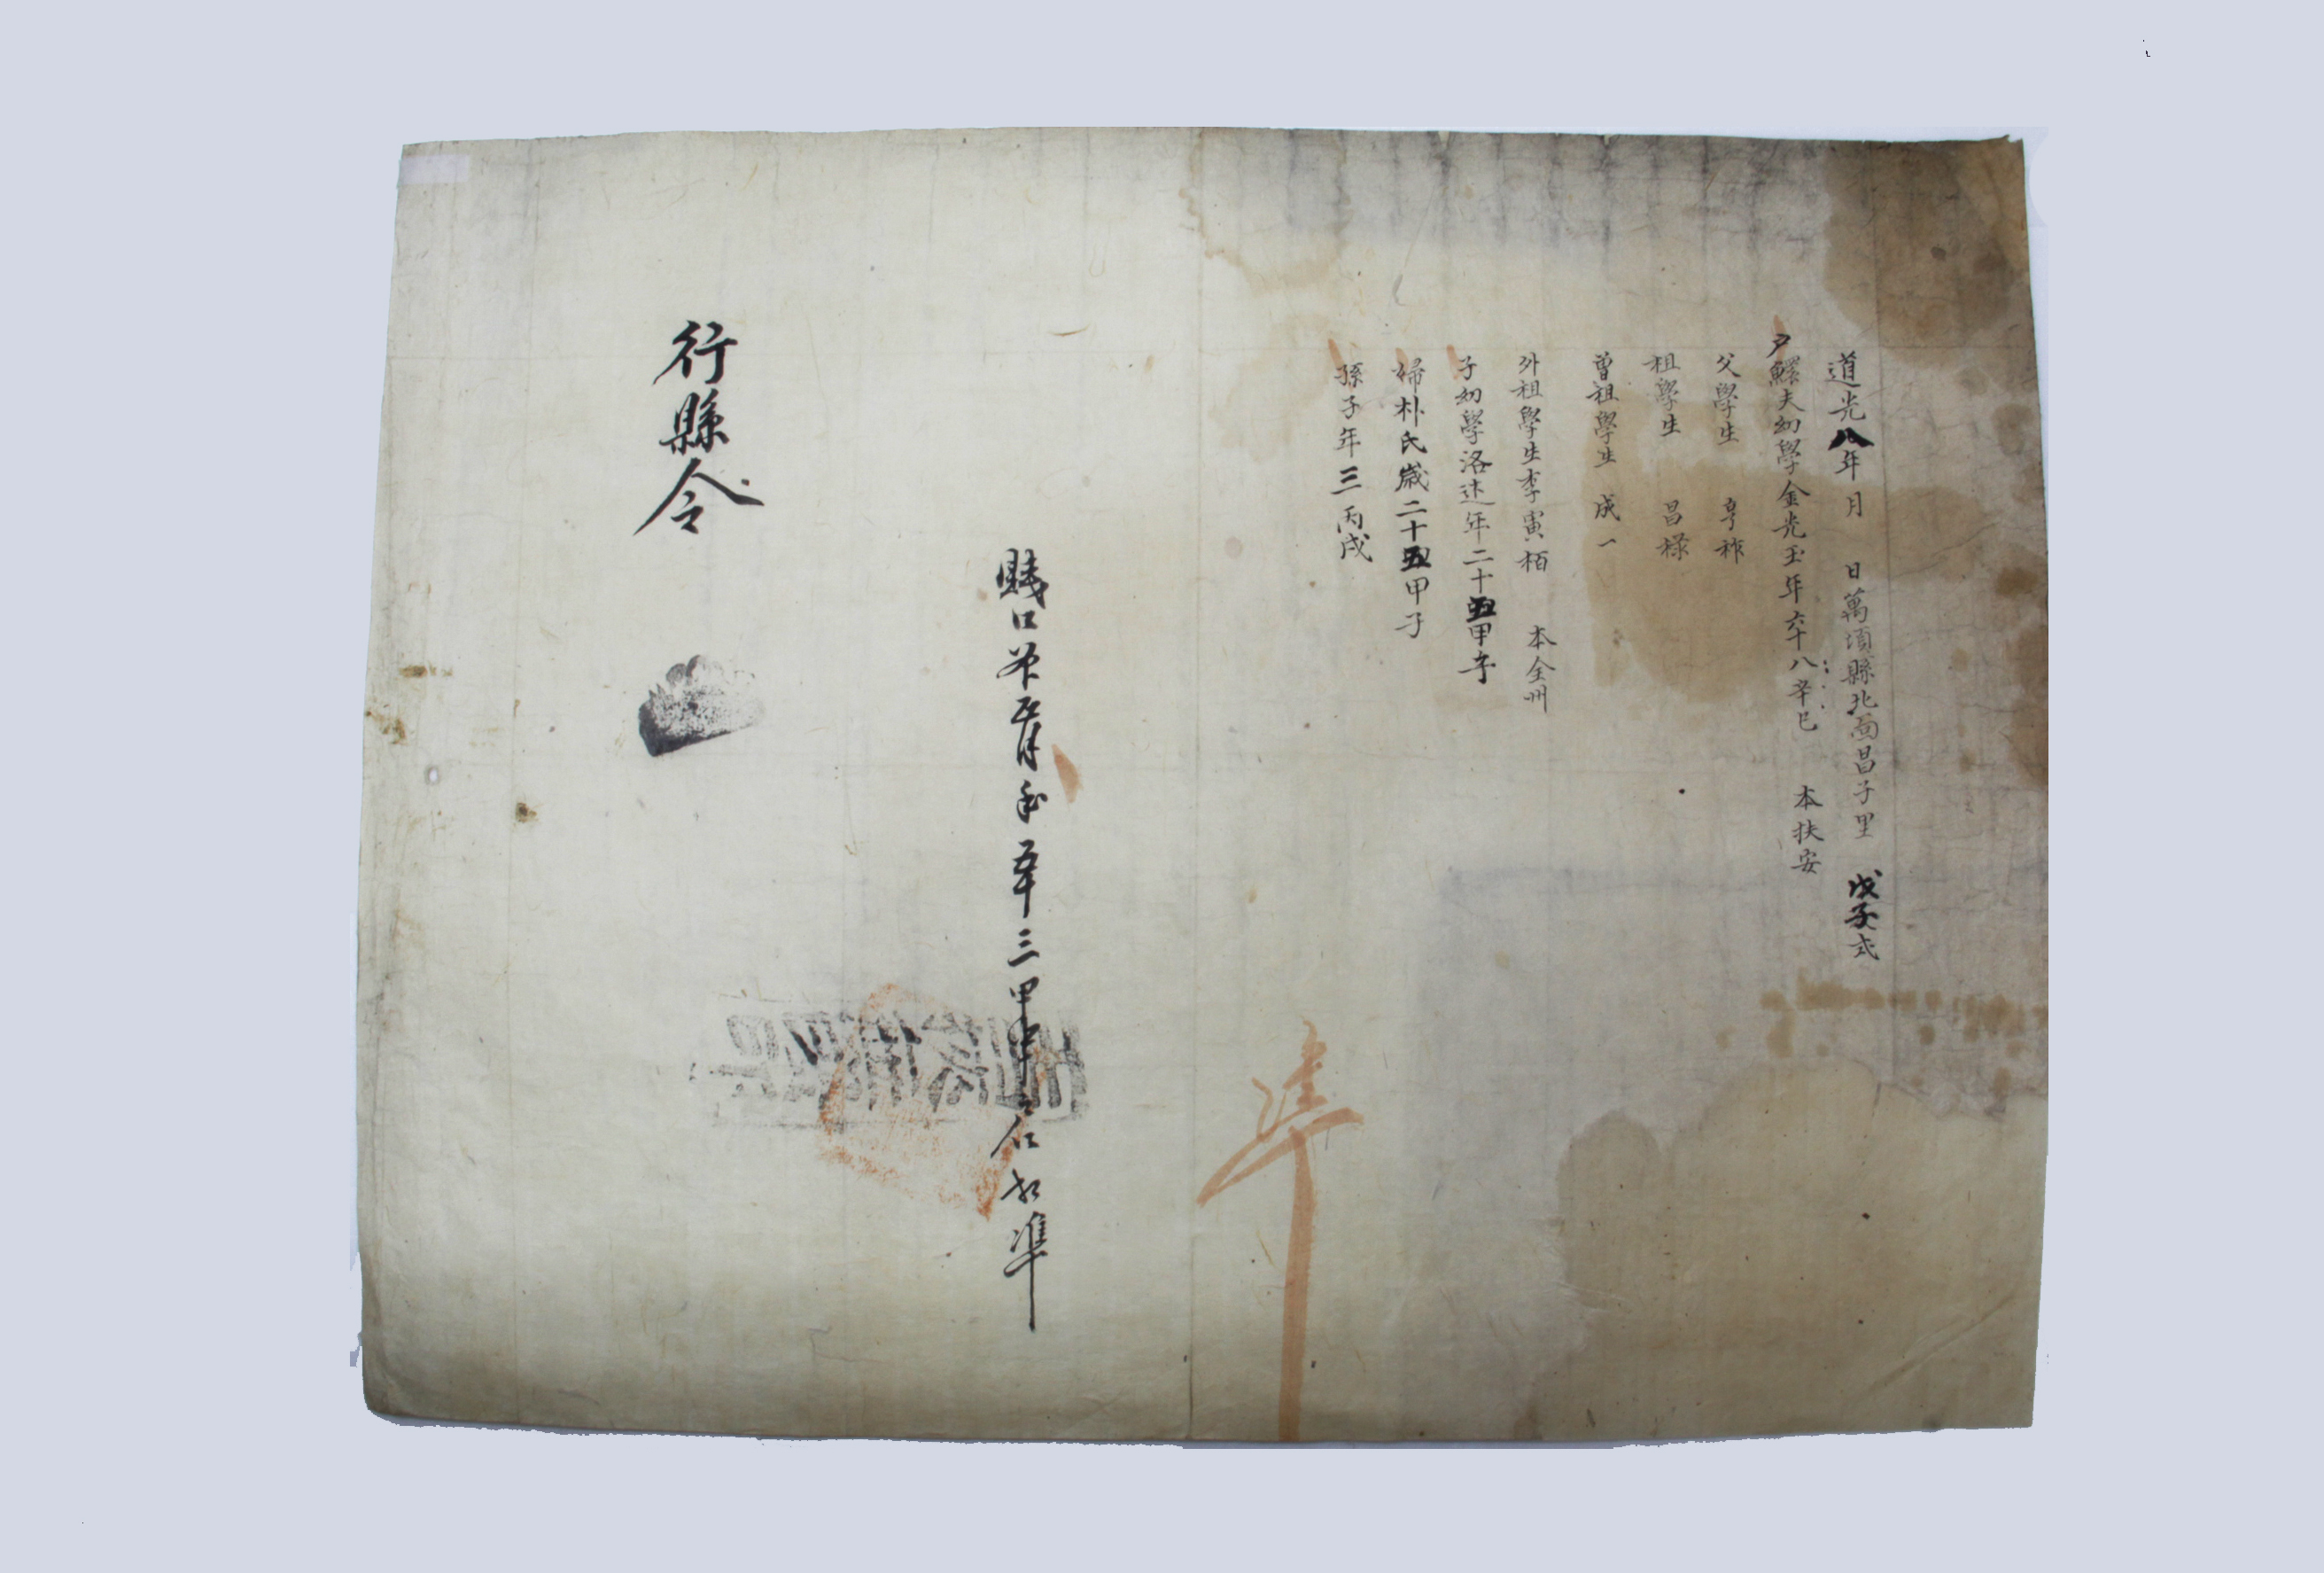 道光八年 月 日萬頃縣北面昌子里 戊子式
戶鰥夫幼學金光玉年六十八辛巳 本扶安
父學生 亨祚
祖學生 昌祿
曾祖學生 成一
外祖學生李寅栢 本全州
子幼學洛 年二十五甲子
婦朴氏歲二十五甲子
孫子年三丙戌
賤口 三甲申 準
行縣令
準